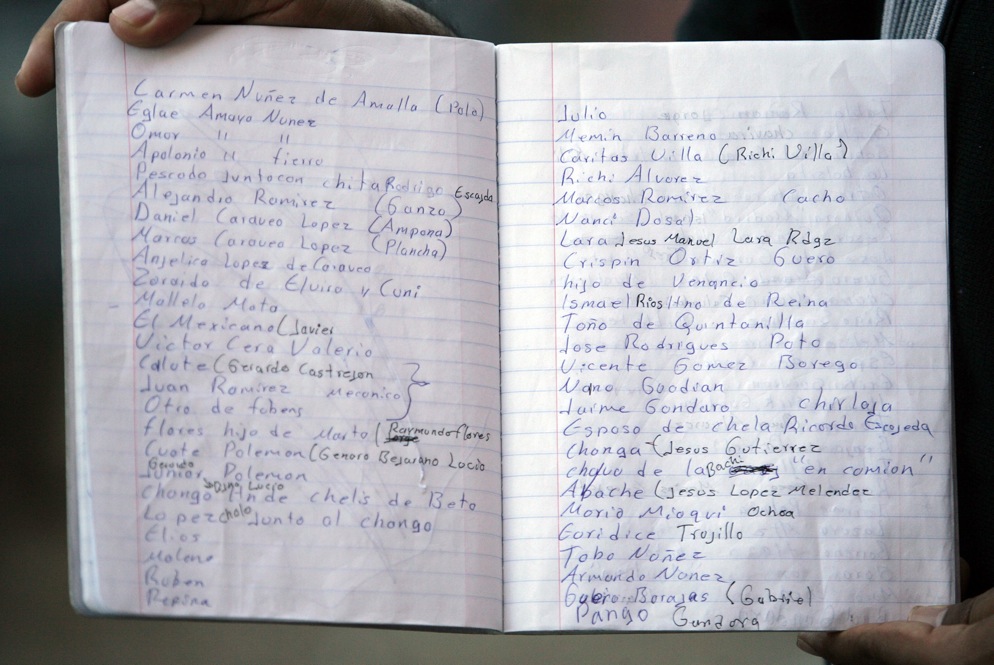 Carmen Nuñez de Amalla (Polo)
Eglae Amaya Nunez
Omar " "
Apolonio " fierro
Pescado Juntocon chita Rodrigo Escajda
Alejandro Ramirez (Ganzo)
Daniel Caraveo Lopez (Ampona)
Marcos Caraveo Lopez (Plancha)
Anjelica Lopez de Caraveo
Zoraido de Elviro y Cuni
Mallelo Mata
El Mexicano (Javier
Victor Cera Valerio
Calote (Gerardo Castrejon
Juan Ramirez Meconico
Otro de fabens
flores hijo de Marto (Raymundo flores
Cuate Polemon (Genaro Bejarano Lucio
Junior Polemon
Chongo de chelis de Beto
Lopez cholo Junto al chango
Elios
Malena
Ruben
Regina
Julio
Memin Barreno
Caritas Villa (Richi Villa)
Richi Alvarez
Marcos Ramirez Cacho
Nanci Dosal
Lara Jesus Manuel Lara Rdgz
Crispin Ortiz Guero
hijo de Venancio
Ismael Rios Hno de Reina
Toño de Quintanilla
Jose Rodrigues Pato
Vicente Gomez Borego
Nano Guadian
Jaime Gandaro chirloja
Esposo de chela Ricardo Escojeda
Chonga (Jesus Gutierrez
chavo de la Bachi "en camion"
Apache (Jesus Lopez Melendez
Mario Mioqui Ochoa
Euridice Trujillo
Tobo Nuñez
Armando Nunez
Guero Borajas (Gabriel)
Pango Gandara